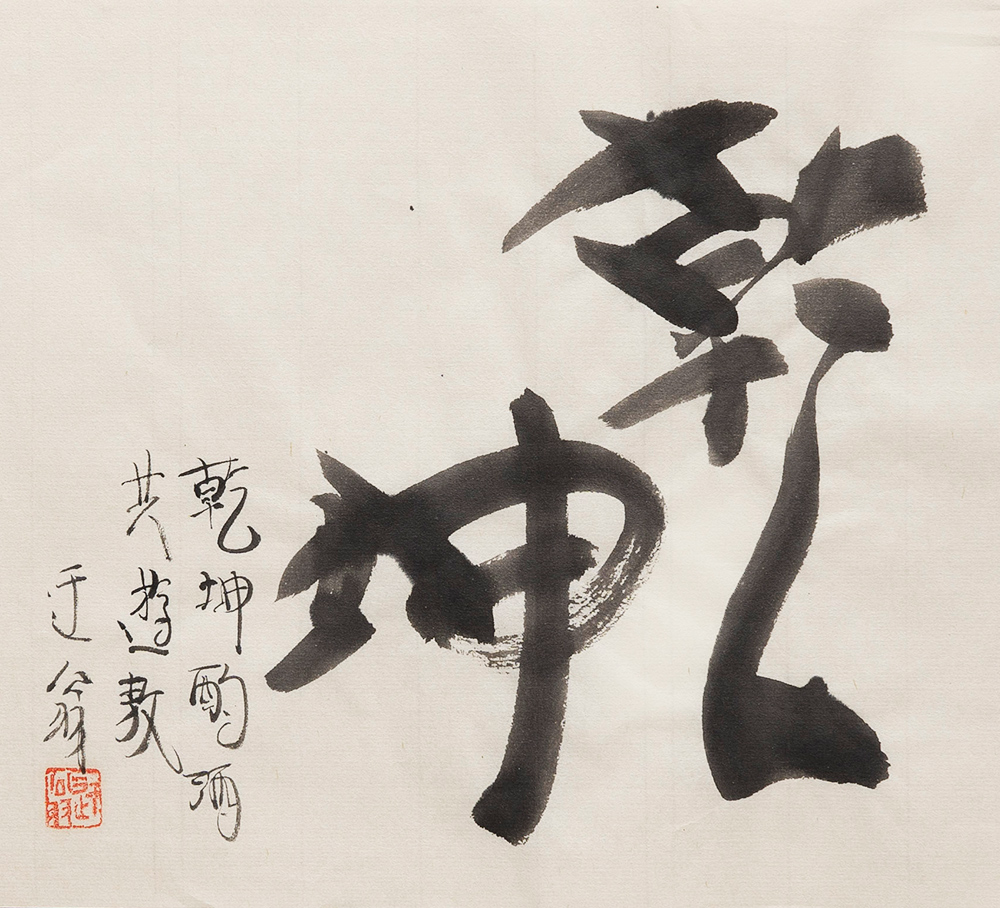 乾坤
乾坤酌酒
共遊敖
迂翁